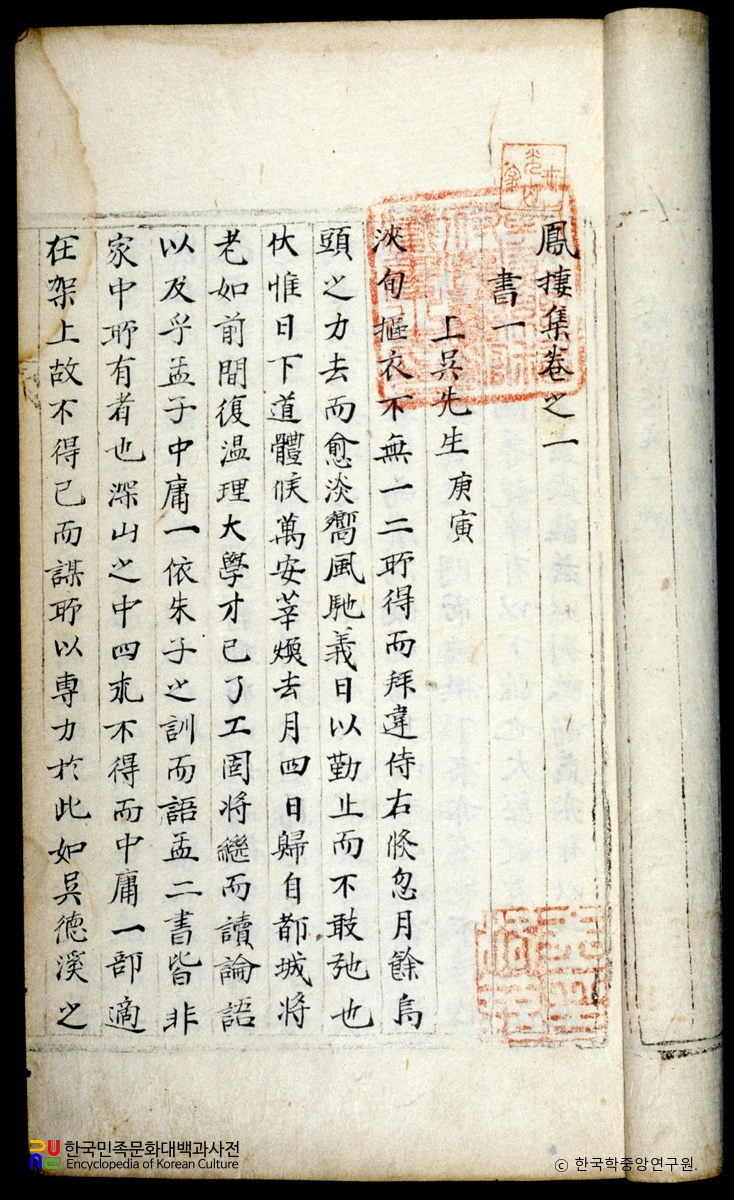 鳳捿集卷之一
書一
上吳先生 庚寅
浹旬摳衣不無一二所得而拜違侍右倐忽月餘烏
頭之力去而愈淡嚮風馳義日以勤止而不敢弛也
伏惟日下道體候萬安莘煥去月四日歸自都城將
老如前間復温理大學才已了工固將繼而讀論語
以及乎孟子中庸一依朱子之訓而語孟二書皆非
家中所有者也深山之中四求不得而中庸一部適
在架上故不得已而謀所以專力於此如吳德溪之
한국민족문화대백과사전
Encyclopedia of Korean Culture
ⓒ 한국학중앙연구원.